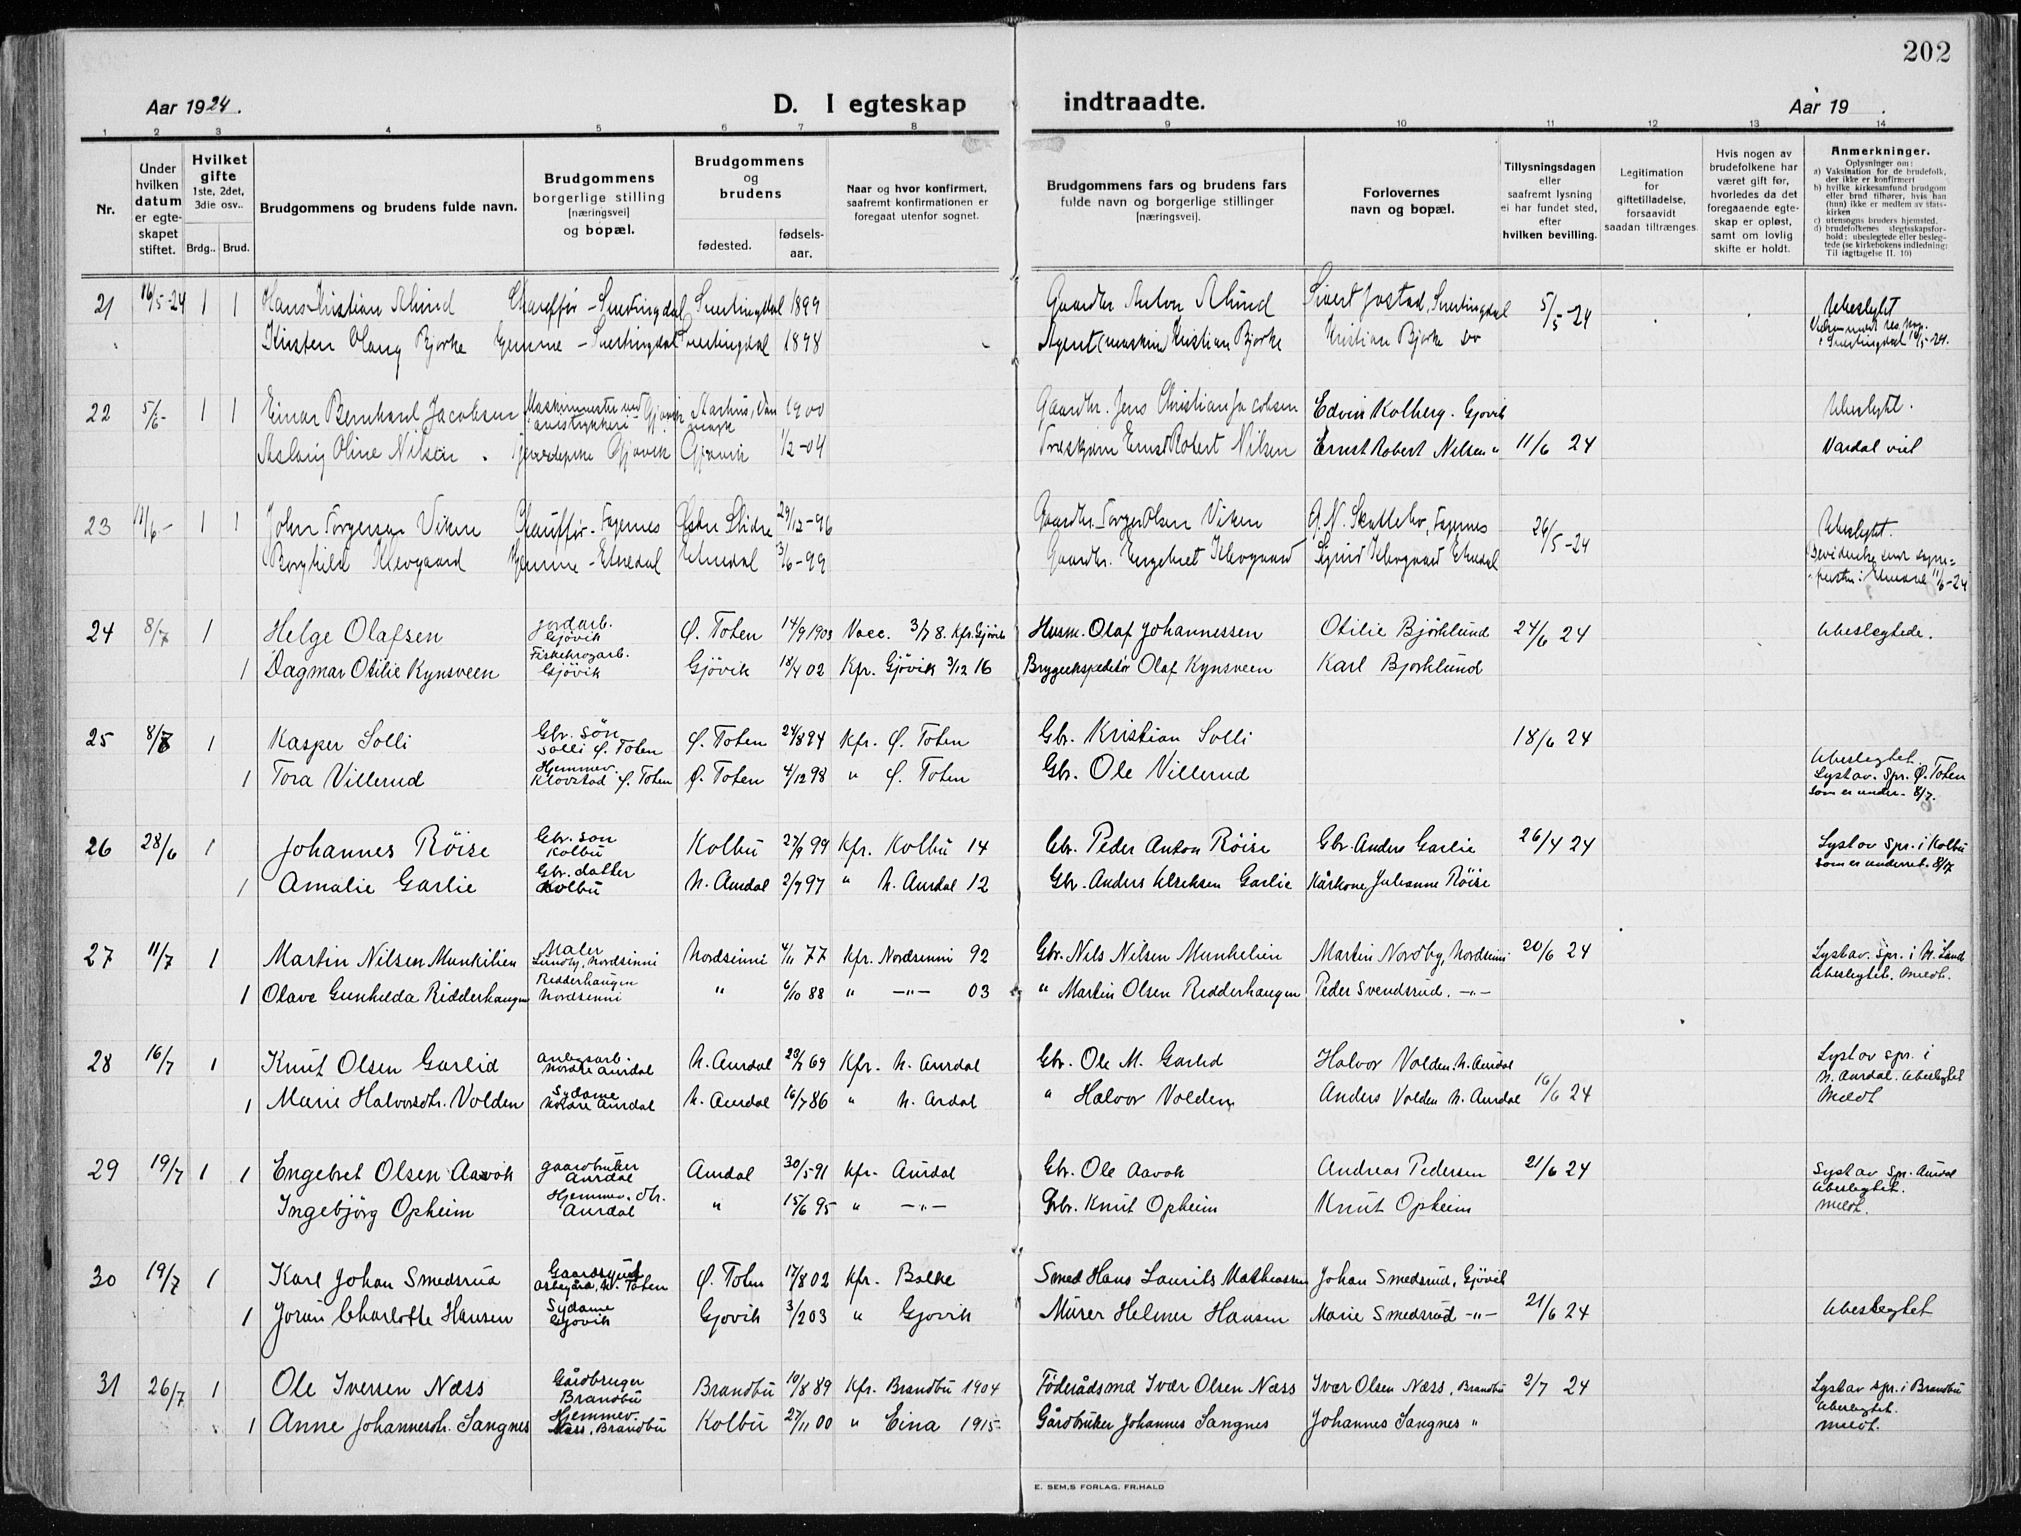 202
Aar 1924. D. I egteskap indtraadte. Aar 19 .
1 2 3 4 5 6 7 8 9 10 11 12 13 14
Nr.
Under hvilken datum er egteskapet stiftet.
Hvilket gifte 1ste, 2det, 3die osv..
Brdg.. Brud.
Brudgommens og brudens fulde navn.
Brudgommens borgerlige stilling (næringsvei) og bopæl.
Brudgommens og brudens
fødested. fødselsaar.
Naar og hvor konfirmert, saafremt konfirmationen er foregaat utenfor sognet.
Brudgommens fars og brudens fars fulde navn og borgerlige stillinger (næringsvei).
Forlovernes navn og bopæl.
Tillysningsdagen eller saafremt lysning ei har fundet sted, efter hvilken bevilling.
Legitimation for giftetilladelse, forsaavidt saadan tiltrænges.
Hvis nogen av brudefolkene har været gift før, hvorledes da det foregaaende egteskap er opløst, samt om lovlig skifte er holdt.
Anmerkninger.
Oplysninger om:
a) Vaksination for de brudefolk, der ikke er konfirmert
b) hvilke kirkesamfund brudgom eller brud tilhører, hvis han (hun) ikke er medlem av statskirken
c) utensogns bruders hjemsted.
d) brudefolkenes slegtsskapsforhold: ubeslegtede eller beslegtede (se kirkebokens indledning: Til iagttagelse II. 10)
21 16/5-24 1 1 Hans Kristian Alund Chauffør - Snertingdal Snertingdal 1899 Gaardbr. Anton Alund Sivert Jostad, Snertingdal 5/5-24 Ubeslegtet
Kirsten Olang Bjørke Hjemme - Snertingdal Snertingdal 1898 Agent (maskin) Kristian Bjørke Kristian Bjørke
Snertingdal 16/5-24.
22 5/6- 1 1 Einar Bernhard Jacobsen Gjøvik Aarhus, Danmark 1900 Gaardbr. Jens Christian Jacobsen Edvin Kolberg. Gjøvik Ubeslegt.
Aslaug Oline Nilsen Gjøvik Gjøvik 1/2-04 Ernst Robert Nilsen Ernst Robert Nilsen " 11/6 24 Vardal viel
23 11/6- 1 1 John Torgersen Viken Chauffør - Fagernes Østre Slidre 29/12-96 Gaardbr. Torger Olsen Viken Fagernes 26/5-24 Ubeslegt.
Borghild Klevgaard Hjemme - Etnedal Etnedal 3/6-99 Gaardbr. Engebret Klevgaard Sigurd Klevgaard Etnedal
11/6-24
24 8/7 1 Helge Olafsen Jordarb. Gjøvik Ø. Toten 14/9 1903 Vacc. 3/7 8. Kfr. Gjøvik Husm. Olaf Johannessen Otilie Bjørklund 24/6 24 Ubeslegtede.
1 Dagmar Otilie Kynsveen Fiskehrogarb. Gjövik Gjövik 18/4 02 Kfr. Gjövik 3/12 16 Bryggeekspeditør Olaf Kynsveen Karl Bjorklund
25 8/7 1 Kasper Solli Gbr. søn Solli Ø. Toten Ø. Toten 24/8 94 Kfr. Ø. Toten Gbr. Kristian Solli 18/6 24
1 Tora Villerud Hjemmev. Klovstad Ø. Toten Ø. Toten 4/12 98 " Ø. Toten Gbr. Ole Villerud Ubeslegtet. Lyst av. Spr. Ø. Toten som er under. 8/7.
26 28/6 1 Johannes Røise Gbr. søn Kolbu Kolbu 27/9 99 Kfr. Kolbu 14 Gbr. Peder Anton Røise Gbr. Anders Garlie 26/4 24 Lyst av spr. i Kolbu som er underret. 8/7
1 Amalie Garlie Gbr. datter Kolbu N. Aurdal 2/7 97 " N. Aurdal 12 Gbr. Anders Ulriksen Garlie Kårkone Julianne Røise
27 11/7 1 Martin Nilsen Munkilien Maler Lundby, Nordsinni Nordsinni 4/11 77 Kfr. Nordsinni 92 Gbr. Nils Nilsen Munkelin Martin Nordby, Nordsinni 20/6 24 Lyst av. spr. i N. Land Ubeslegtet. Meldt.
1 Olava Gunhilda Ridderhaugen Ridderhaugen Nordsinni " 6/10 88 " -"- 03 " Martin Olsen Ridderhaugen Peder Svendsrud. -"-
28 16/7 1 Knut Olsen Garlid Anlegsarb. Nordre Aurdal N. Aurdal 23/7 69 Kfr. N. Aurdal Gbr. Ole M. Garlid Halvor Volden. N. Aurdal Lyst av spr. i N. Aurdal. Ubeslegtet Meldt
1 Marie Halvorsdtr. Volden Sydame Nordre Aurdal N. Aurdal 16/7 86 " N. Ardal " Halvor Volden Anders Volden N. Aurdal 16/6 24
29 19/7 1 1 Engebret Olsen Aavok gaardbruker Aurdal Aurdal 30/5-91 Kfr. Aurdal Gbr. Ole Aavok Andreas Pedersen 21/6 24 Lyst av spr. Aurdal Ubeslegtet. Meldt.
Ingebjörg Opheim Hjemmev. dtr. Aurdal " 15/6 95 " -"- Gbr. Knut Opheim Knut Opheim
30 19/7 1 Karl Johan Smedsrud Gaardsgut V. Toten Ø. Toten 17/8 02 Kfr. Balke Smed Hans Laurits Mathiassen Johan Smedsrud, Gjövik
1 Jorun Charlotte Hansen Sydame Gjövik Gjovik 3/2 03 " Gjovik Murer Helmer Hansen Marie Smedsrud -"- 21/6 24 Ubeslegtet
31 26/7 1 Ole Iversen Næss Gårdbruger Brandbu Brandbu 10/8 89 Kfr. Brandbu 1904 Föderådsmd Ivar Olsen Næss Ivar Olsen Næss, Brandbu 2/7 24 Lyst av spr. i Brandbu Ubeslegtet. Meldt.
1 Anne Johannesdtr. Sangnes Hjemmev. Næss, Brandbu Kolbu 27/11 00 " Eina 1915 Gårdbruker Johannes Sangnes Johannes Sangnes "
E. SEM,S FORLAG, FR.HALD